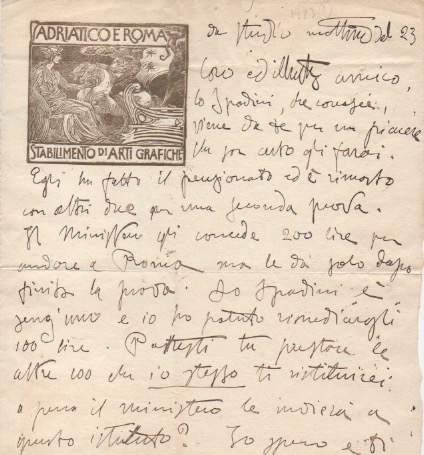 ADRIATICO E ROMA
STABILIMENTO DI ARTI GRAFICHE
da studio mattina del 23
Caro ed illustre amico,
lo Spadini, che conosce,
viene da te per un piacere
che son certo gli farai.
Egli ha fatto il pensionato ed è rimasto
con altri due per una seconda prova.
Il Ministero gli concede 200 lire per
andare a Roma ma le dà solo dopo
finita la prova. Lo Spadini è
senz'uno e io ho potuto rimediargli
100 lire. Potresti tu prestare le
altre 100 che io stesso ti restituirei
a pena il ministero le invierà a
questo istituto? Io spero e ti